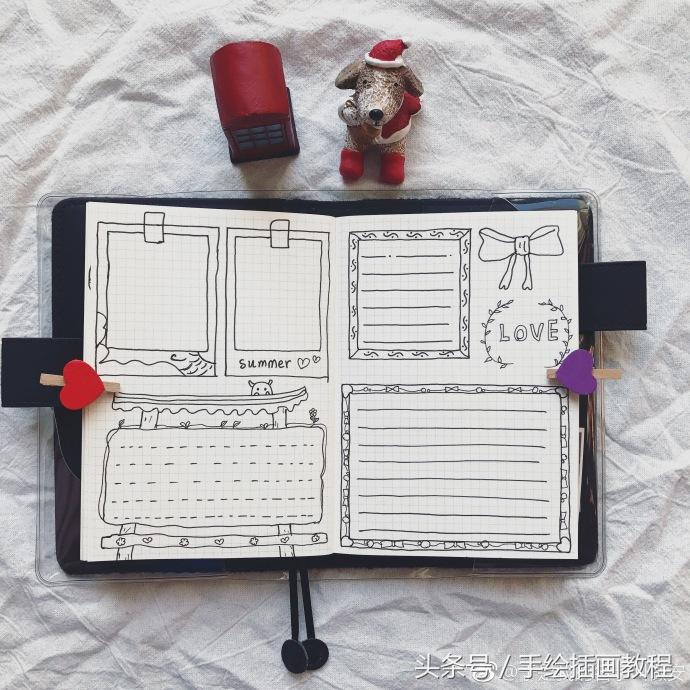 summer
LOVE
头条号／手绘插画教程